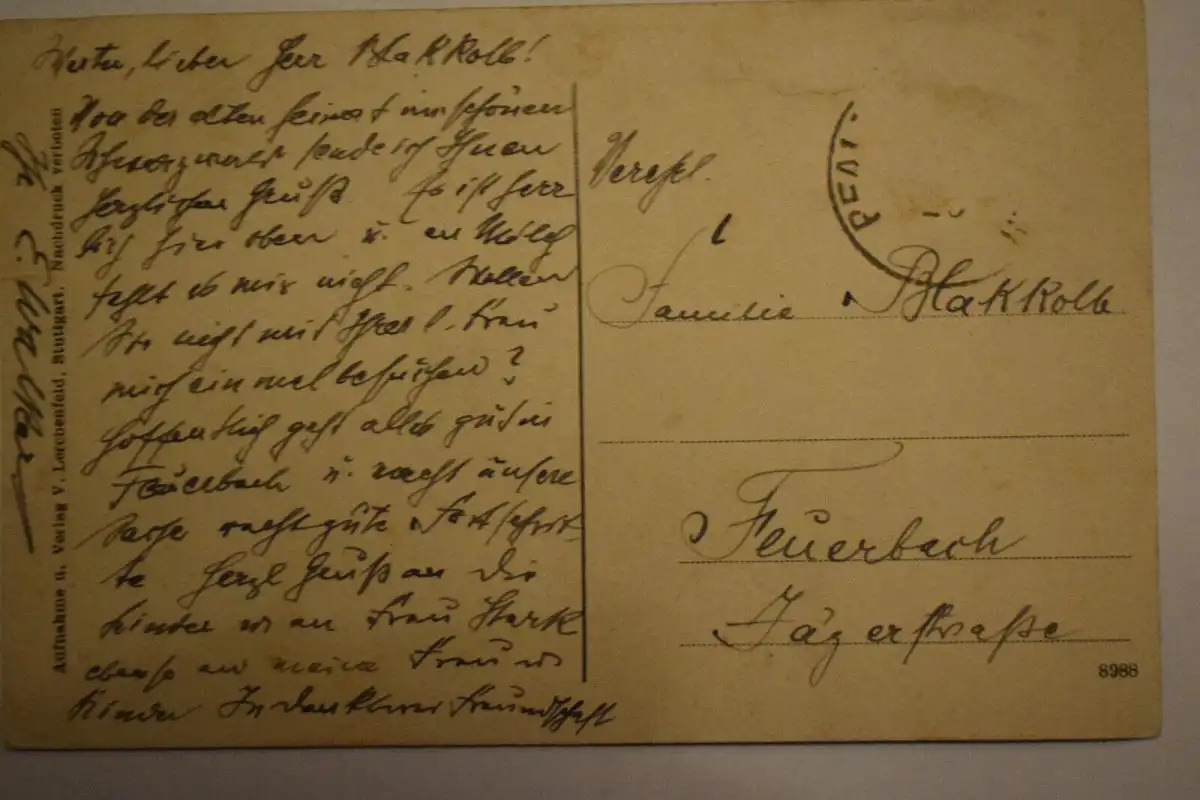 Werter, lieber Herr Blakkolb!
Von der alten Heimat im schönen
Schwarzwald sende ich Ihnen
herzlichen Gruß. Es ist herr
lich hier oben u. an Milch
fehlt es mir nicht. Wollen
Sie nicht mit Ihrer l. Frau
mich einmal besuchen?
Hoffentlich geht alles gut in
Feuerbach u. macht unsere
Sache recht gute Fortschrit-
te. Herzl Gruß an die
Kinder u an Frau Stark
ebenso an meine Frau u
Kinder In dankbarer Freundschaft
Ihr E. Walter
Aufnahme u. Verlag V. Lerchenfeld, Stuttgart. Nachdruck verboten
Verehrl.
Familie Blakkolb
Feuerbach
Jägerstraße
8988